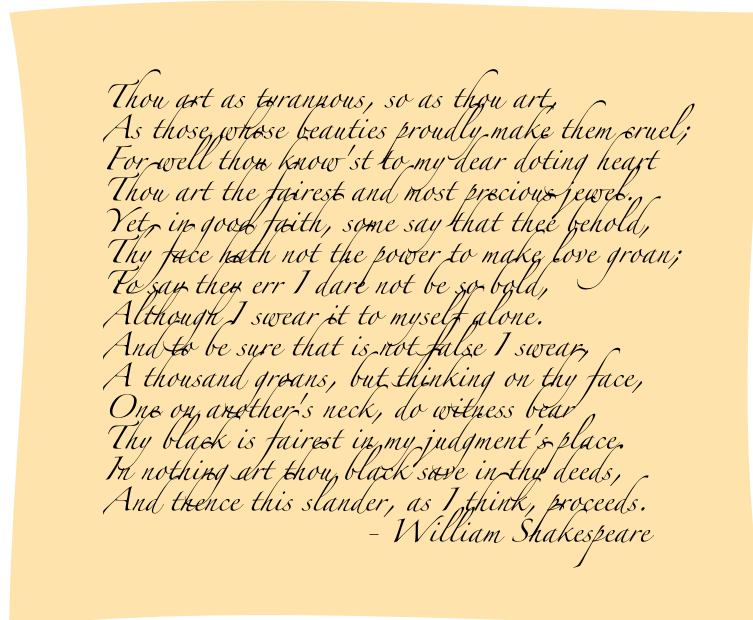 Thou art as tyrannous, so as thou art,
As those whose beauties proudly make them cruel;
For well thou know'st to my dear doting heart
Thou art the fairest and most precious jewel.
Yet, in good faith, some say that thee behold,
Thy face hath not the power to make love groan;
To say they err I dare not be so bold,
Although I swear it to myself alone.
And to be sure that is not false I swear,
A thousand groans, but thinking on thy face,
One on another's neck, do witness bear
Thy black is fairest in my judgment's place.
In nothing art thou black save in thy deeds,
And thence this slander, as I think, proceeds.
- William Shakespeare